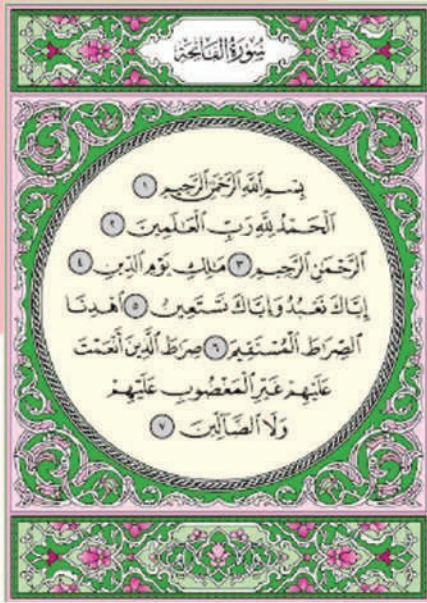 سُورَةُ الفَاتِحَةِ
بِسۡمِ ٱللَّهِ ٱلرَّحۡمَٰنِ ٱلرَّحِيمِ ١
ٱلۡحَمۡدُ لِلَّهِ رَبِّ ٱلۡعَٰلَمِينَ ٢
ٱلرَّحۡمَٰنِ ٱلرَّحِيمِ ٣ مَٰلِكِ يَوۡمِ ٱلدِّينِ ٤
إِيَّاكَ نَعۡبُدُ وَإِيَّاكَ نَسۡتَعِينُ ٥ ٱهۡدِنَا
ٱلصِّرَٰطَ ٱلۡمُسۡتَقِيمَ ٦ صِرَٰطَ ٱلَّذِينَ أَنۡعَمۡتَ
عَلَيۡهِمۡ غَيۡرِ ٱلۡمَغۡضُوبِ عَلَيۡهِمۡ
وَلَا ٱلضَّآلِّينَ ٧